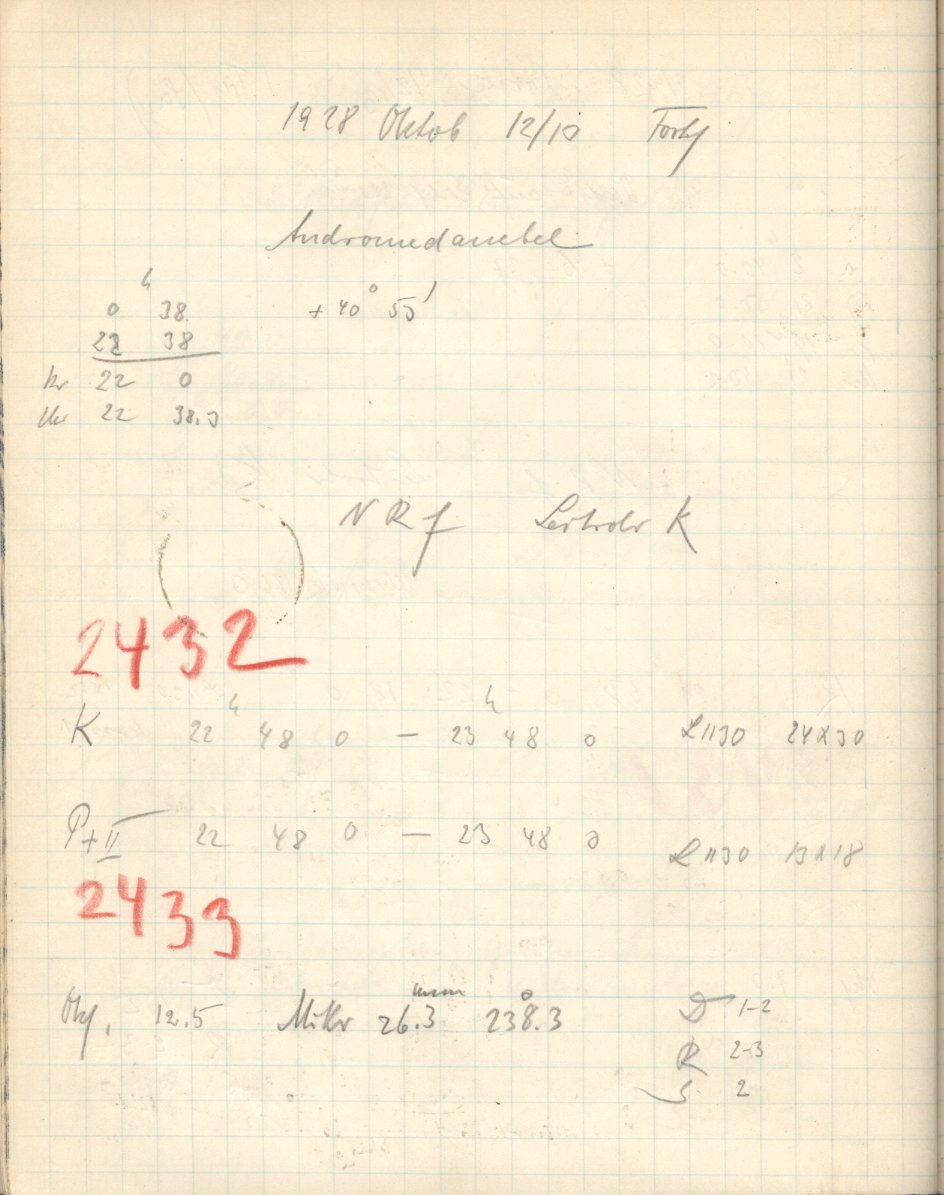 1928 Oktob 12/13 Forts
Andromedanebel
h
0 38 + 40° 55'
22 38
22 0
Uhr 22 38.5
N R f Leitrohr K
2432
K 22h 48 0 — 23h 48 0 L 1130 24x30
P+II 22 48 0 — 23 48 0 L 1130 13x18
2433
Obj. 12.5 Mikr 26.3mm 238.3°
D 1-2
R 2-3
S 2